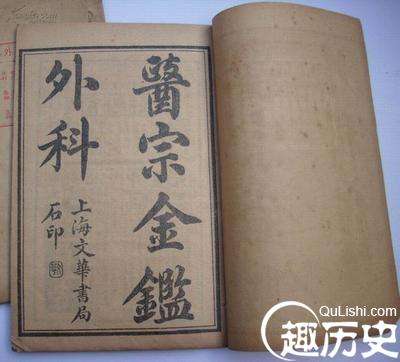 醫宗金鑑
外科
上海文華書局
石印
QuLishi.com
趣历史